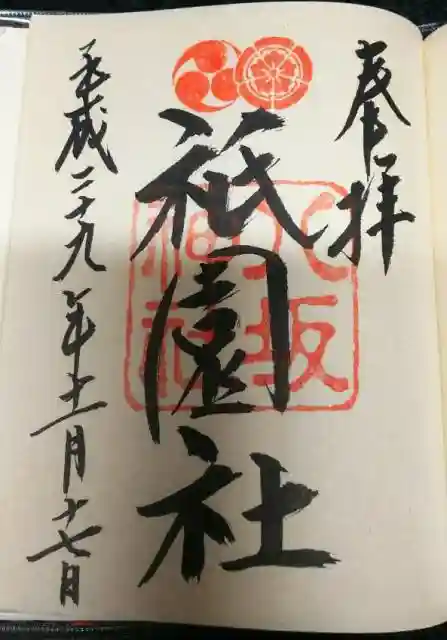 奉拝
八坂
神社
祇園社
平成二十九年十一月十七日